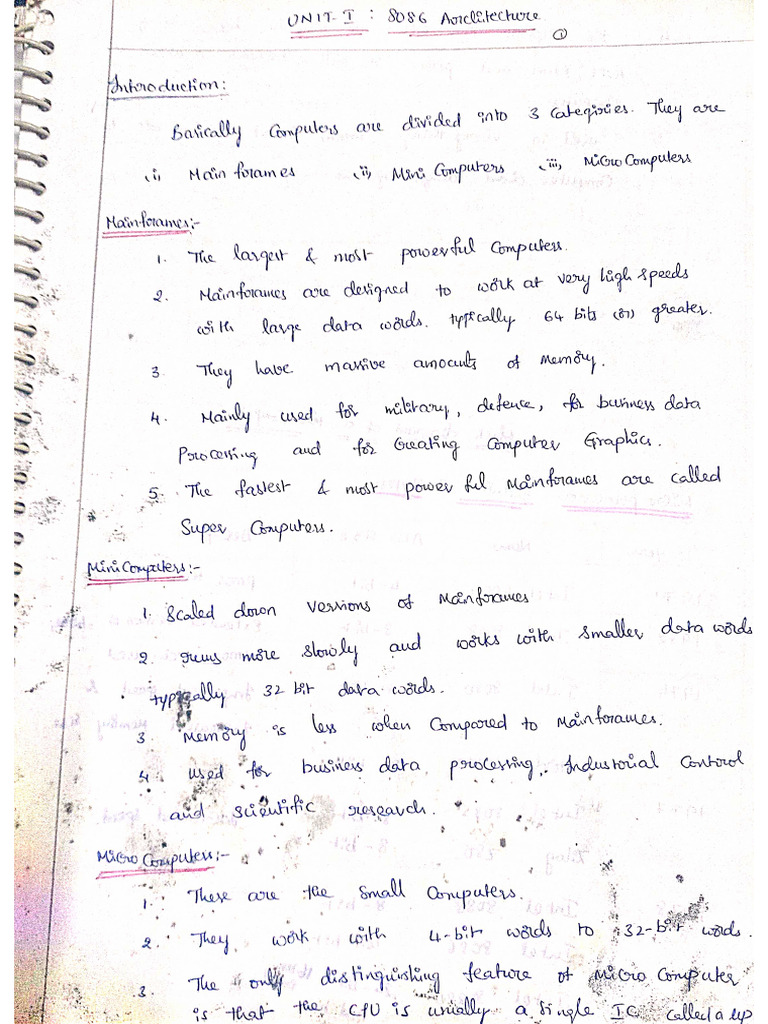 UNIT-I : 8086 Architecture
1
Introduction:
Basically Computers are divided into 3 Categiries. They are
(i) Main frames (ii) Mini Computers (iii) Micro Computers
Mainframes:-
1. The largest & most powerful Computers.
2. Mainframes are designed to work at very high speeds
with large data words. typically 64 bits (or) greater.
3. They have massive amounts of Memory.
4. Mainly used for military, defence, for business data
Processing and for Creating Computer Graphics.
5. The fastest & most powerful Mainframes are called
Super Computers.
Mini Computers:-
1. Scaled down versions of Mainframes
2. runs more slowly and works with smaller data words
typically 32 bit data words.
3. Memory is less when Compared to Mainframes.
4. used for business data processing, Industrial Control
and scientific research.
Micro Computers:-
1. These are the small Computers.
2. They work with 4-bit words to 32-bit words.
3. The only distinguishing feature of Micro Computer
is that the CPU is usually a single IC called a up